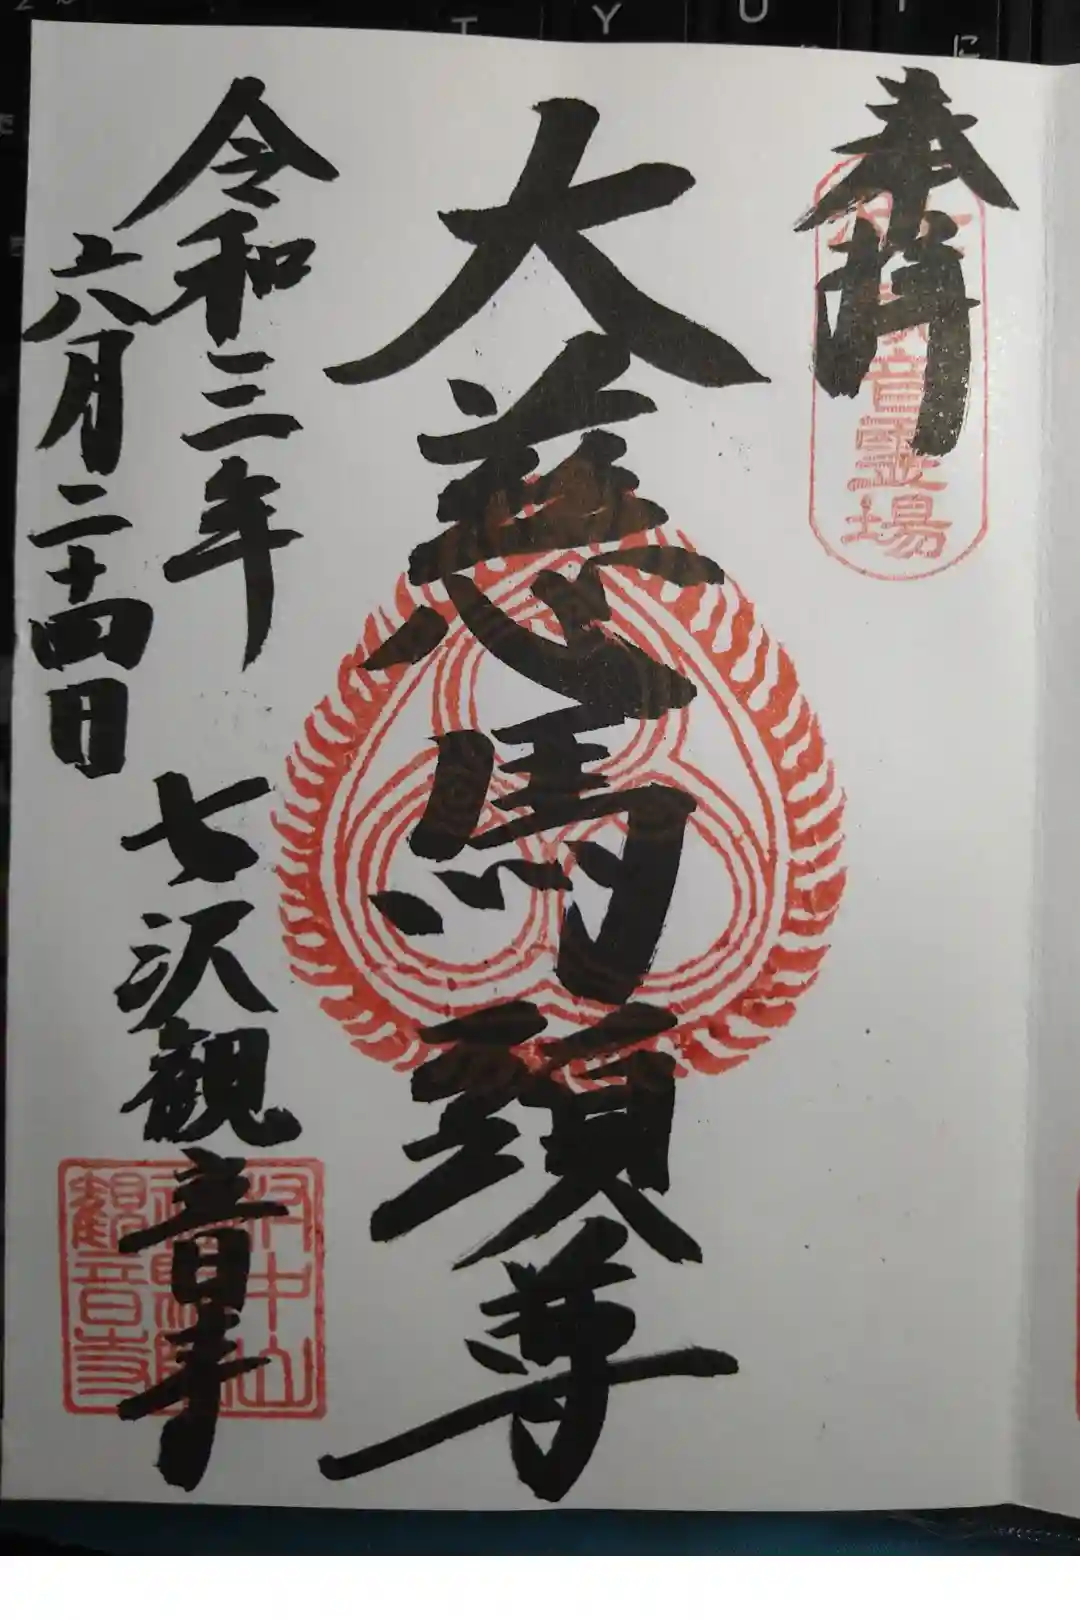 奉拝
音霊場
大慈馬頭尊
令和三年 七沢観音寺
六月二十四日
中山
観音寺
T Y U
に